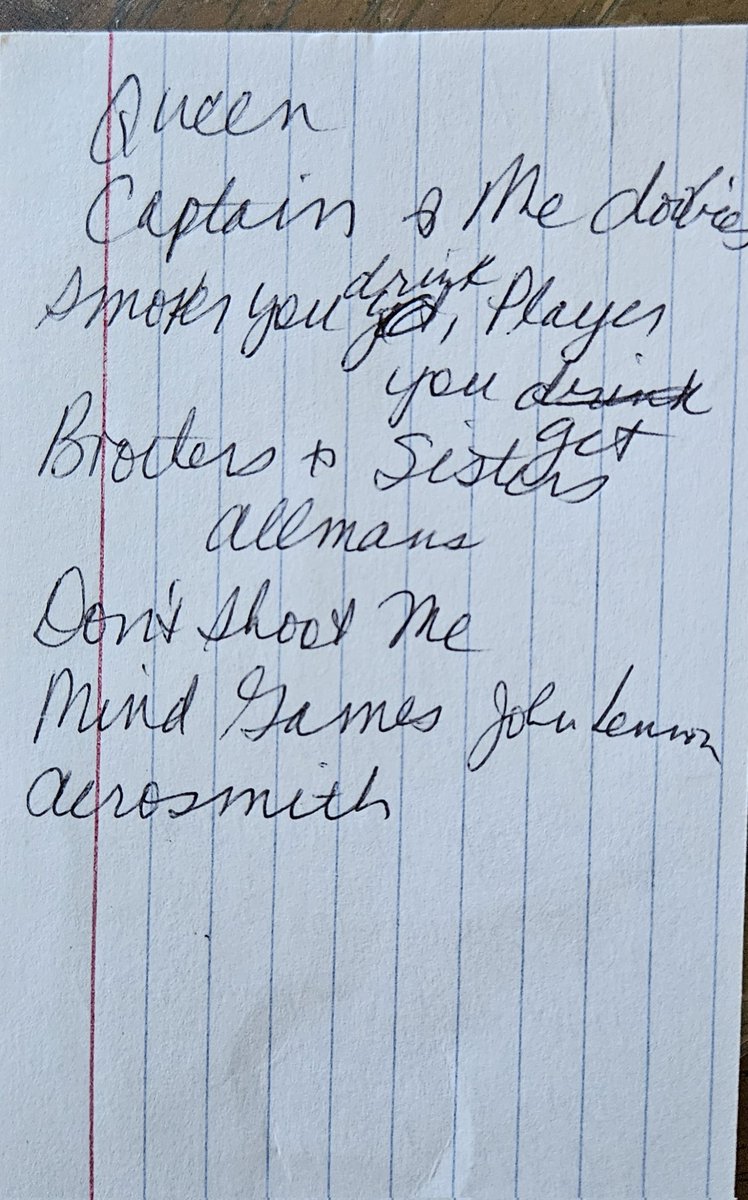 Queen
Captain & Me doobies
Smoker you drink, Player
you drink get
Brothers & Sisters
allmans
Don't Shoot Me
Mind Games John Lennon
aerosmith